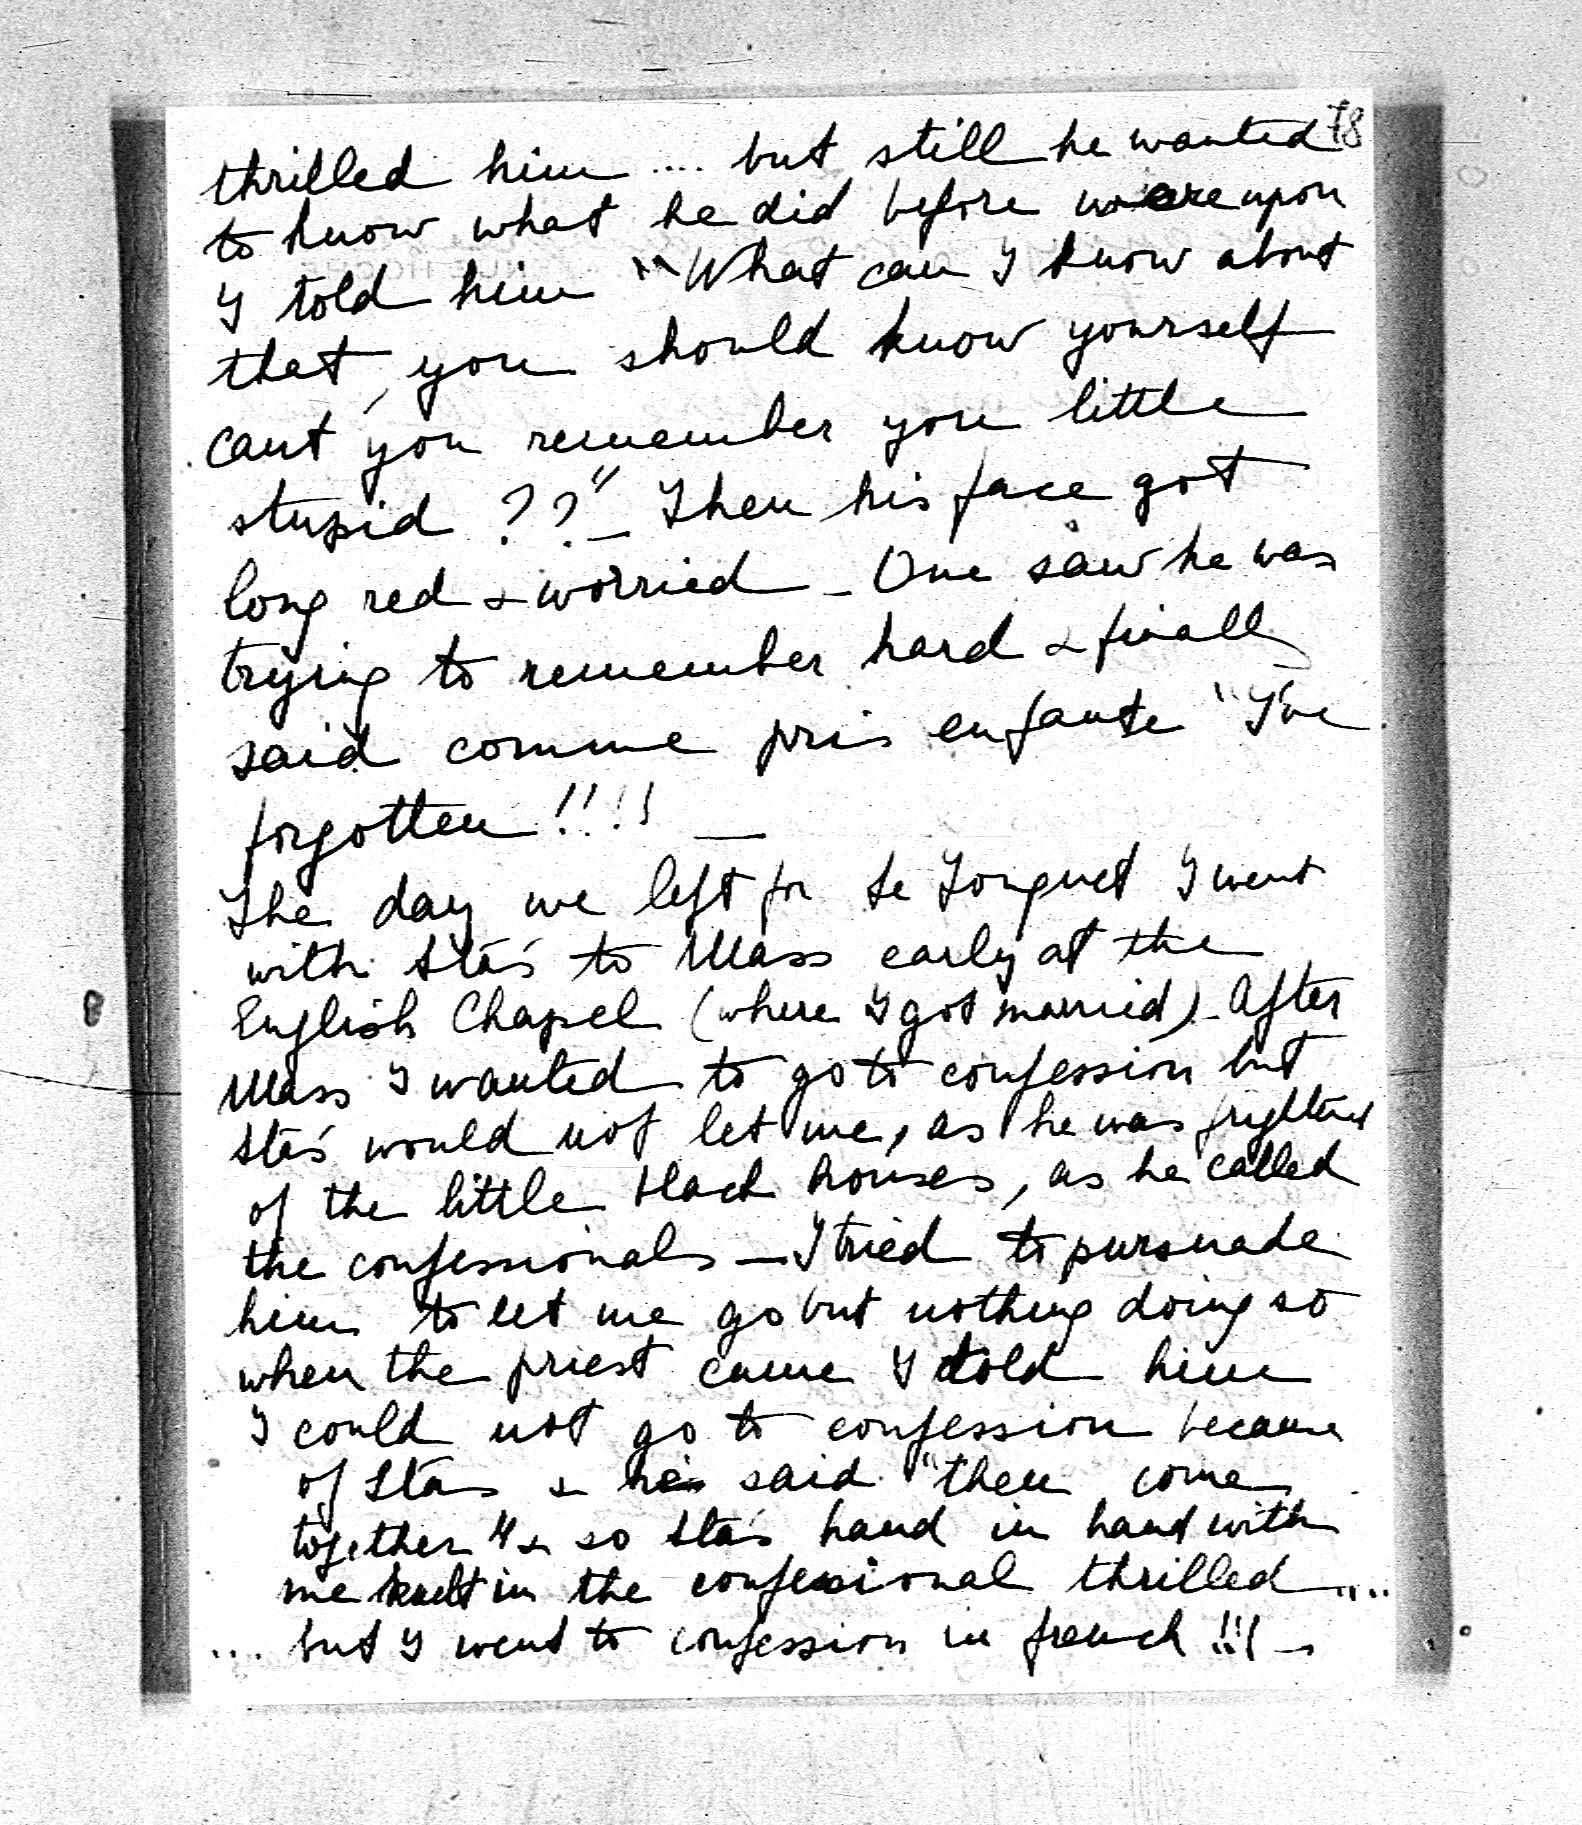 78
thrilled him .... but still he wanted
to know what he did before whereupon
I told him "What can I know about
that, you should know yourself
cant you remember you little
stupid ??" – Then his face got
long red & worried – One saw he was
trying to remember hard & finally
said comme pris en faute "I've
forgotten !!!! —
The day we left for Le Touquet I went
with Stás to Mass early at the
English Chapel (where I got married) – After
Mass I wanted to go to confession but
Stás would not let me, as he was frightened
of the little black houses, as he called
the confessionals – I tried to pursuade
him to let me go but nothing doing so
when the priest came I told him
I could not go to confession because
of Stás & he said "then come
together" & so Stás hand in hand with
me knelt in the confessional thrilled ....
.... but I went to confession in french !!! –